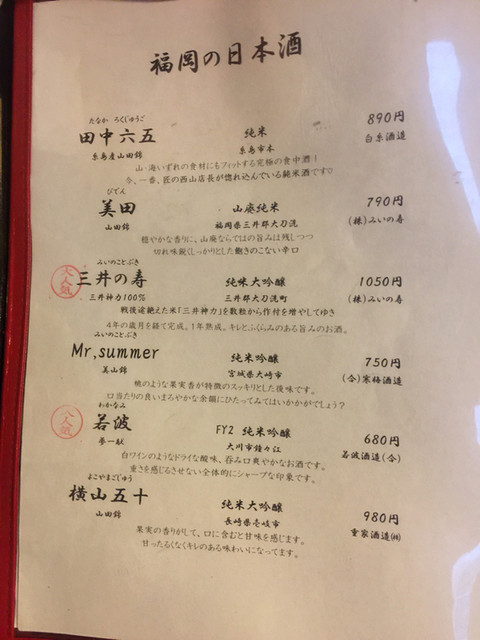 福岡の日本酒
たなか ろくじゅうご
田中六五 純米 890円
糸島産山田錦 糸島市本 白糸酒造
山・海いずれの食材にもフィットする究極の食中酒!
今、一番、匠の西山店長が惚れ込んでいる純米酒です♡
びでん
美田 山廃純米 790円
山田錦 福岡県三井郡大刀洗 (株)みいの寿
穏やかな香りに、山廃ならではの旨みは残しつつ
切れ味鋭くしっかりとした飽きのこない辛口
みいのことぶき
大人気 三井の寿 純味大吟醸 1050円
三井神力100% 三井郡大刀洗町 (株)みいの寿
戦後途絶えた米「三井神力」を数粒から作付を増やしてゆき
4年の歳月を経て完成。1年熟成。キレとふくらみのある旨みのお酒。
みいのことぶき
Mr,summer 純米吟醸 750円
美山錦 宮城県大崎市 (合)寒梅酒造
桃のような果実香が特徴のスッキリとした後味です。
口当たりの良いまろやかな余韻にひたってみてはいかかがでしょう?
わかなみ
大人気 若波 FY2 純米吟醸 680円
夢一献 大川市鐘ヶ江 若波酒造(合)
白ワインのようなドライな酸味、呑み口爽やかなお酒です。
重さを感じるさせない全体的にシャープな印象です。
よこやまごじゅう
横山五十 純米大吟醸 980円
山田錦 長崎県壱岐市 重家酒造㈱
果実の香りがして、口に含むと甘味を感じます。
甘ったるくなくキレのある味わいになってます。